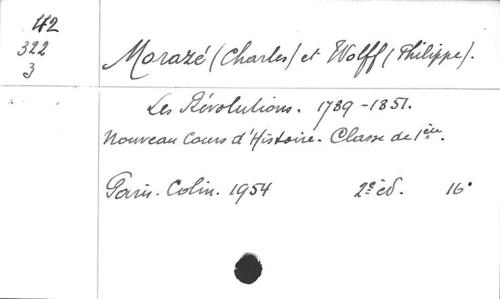 42
322
3
Morazé (Charles) et Wolff (Philippe).
Les Révolutions. 1789-1851.
Nouveau Cours d'Histoire. Classe de 1ère.
Paris. Colin. 1954 2e éd. 16°